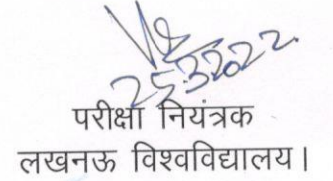 25.3.2022.
परीक्षा नियंत्रक
लखनऊ विश्वविद्यालय।